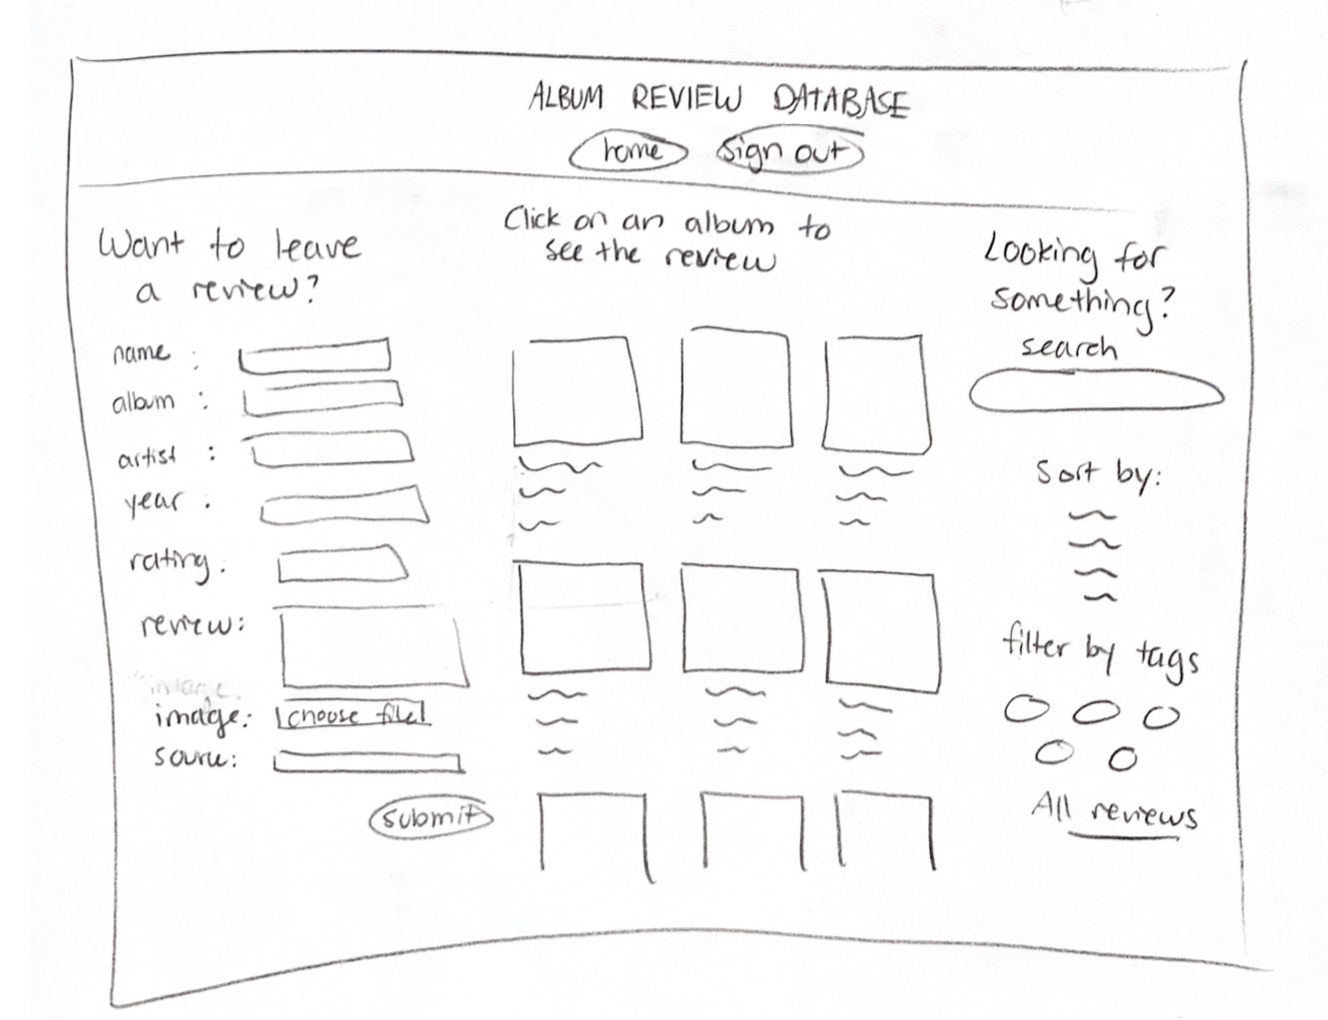 ALBUM REVIEW DATABASE
home sign out
Want to leave
a review?
name :
album :
artist :
year :
rating :
review:
image.
image: choose file
source:
submit
Click on an album to
see the review
Looking for
something?
search
Sort by:
filter by tags
All reviews